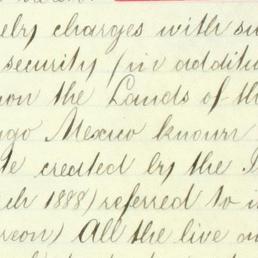 eby charges with su
security (in additio
on the Lands of th
ngo Mexico known
te created by the I
ch 1888) referred to i
reon) All the live